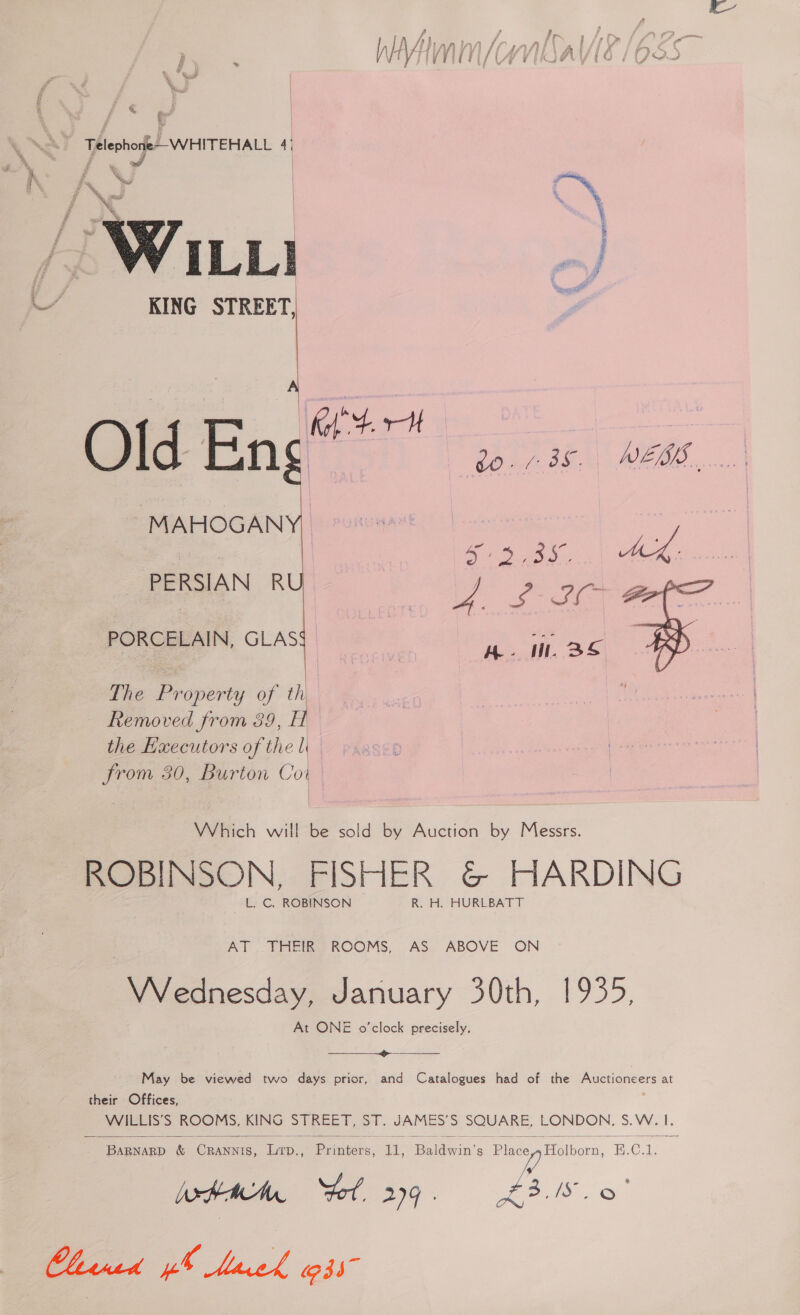 WA/HMM/Cm/Sal/18/685
Telephone—WHITEHALL 4
WILLI
KING STREET,
A
Old Eng
20. 1. 35. WEBB
MAHOGANY
5.2.35.
PERSIAN RU
PORCELAIN, GLASS
The Property of th
Removed from 39, H
the Executors of the l
from 30, Burton Co
DATE
INITIALS
PASSED
Which will be sold by Auction by Messrs.
ROBINSON, FISHER & HARDING
L. C. ROBINSON R. H. HURLBATT
AT THEIR ROOMS, AS ABOVE ON
Wednesday, January 30th, 1935,
At ONE o'clock precisely.
May be viewed two days prior, and Catalogues had of the Auctioneers at
their Offices,
WILLIS'S ROOMS, KING STREET, ST. JAMES'S SQUARE, LONDON, S.W. 1.
BARNARD & CRANNIS, LTD., Printers, 11, Baldwin's Place, Holborn, E.C.1.
Lot. 279. £3.15.0
Cleared 4th March 1935